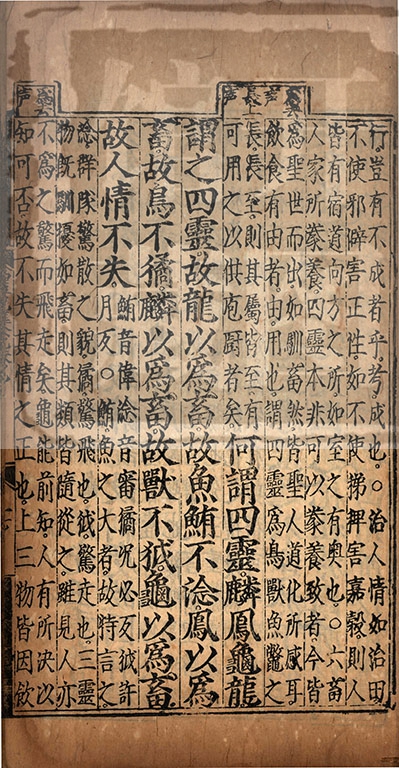 爲去声
長上声
行。豈有不成者乎。考成也。○治人情如治田
不使邪僻害正性。如不使稊稗害嘉穀。則人
皆有宿道向方之所。如室之有奧也。○六畜
人家所豢養。四靈本非可以豢養致者。今皆
爲聖世而出。如馴畜然。皆聖人道化所感耳
飲食有由者。由用也。謂四靈爲鳥獸魚鱉之
長。長至則其屬皆至。有
可用之以供庖厨者矣。
何謂四靈麟鳳龜龍
謂之四靈。故龍以爲畜。故魚鮪不淰。鳳以爲
畜。故鳥不獝。麟以爲畜。故獸不狘。龜以爲畜
故人情不失。
鮪音偉淰音審獝況必反狘許
月反。○鮪魚之大者故特言之。
淰群隊驚散之貌。獝驚飛也。狘驚走也。三靈
物旣馴擾如畜。則其類皆隨從之。雖見人亦
不爲之驚而飛走矣。龜能前知。人有所決以
知可否。故不失其情之正也。上三物皆因飲
爲去声